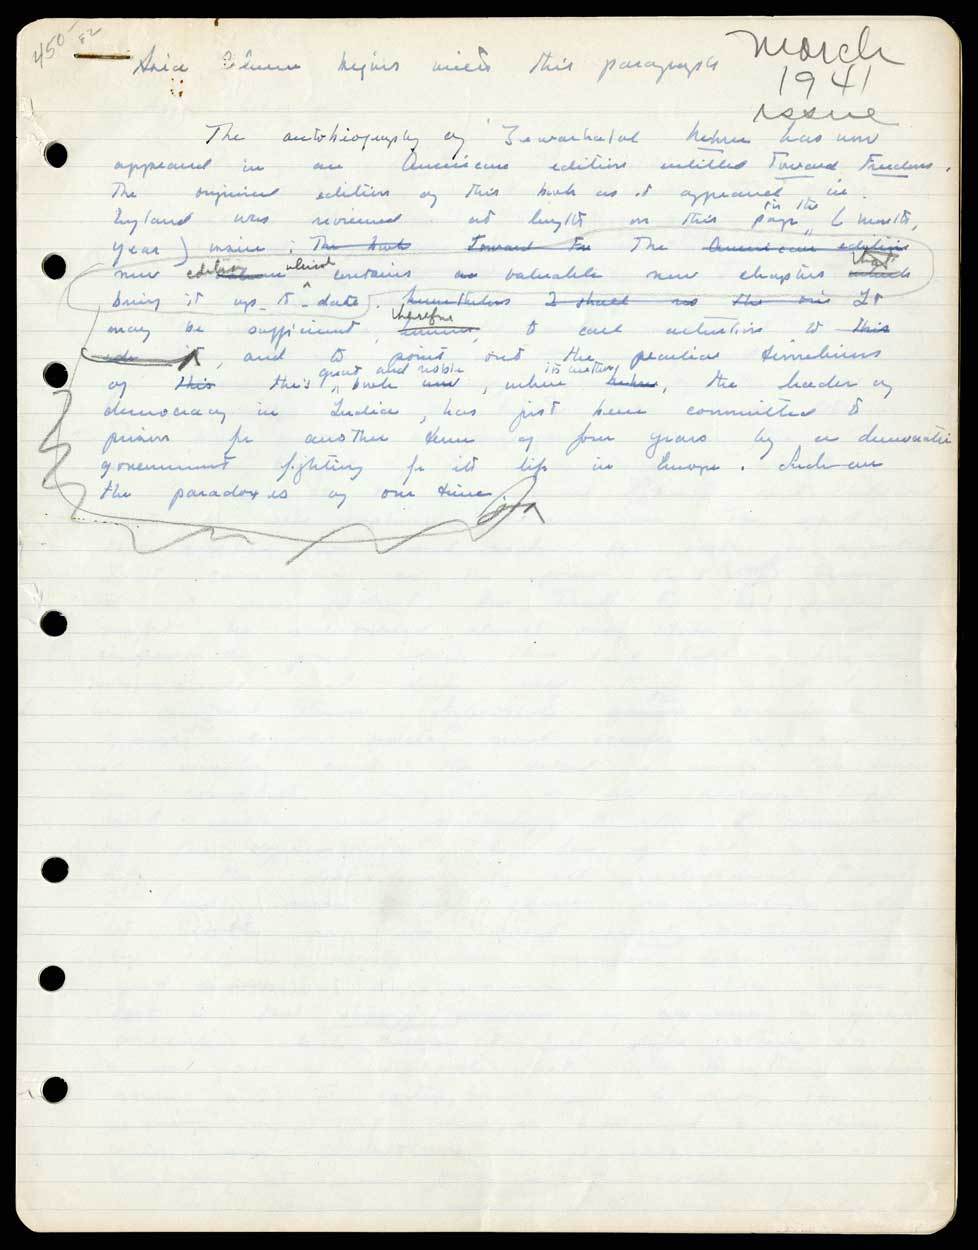 450-
March
1941
issue
begins with this paragraph
The autobiography of Jawaharlal Nehru has now
appeared in an American edition entitled Toward Freedom.
The original edition of this book as it appeared in
England was reviewed at length on this page in the (month,
year) issue. The book Toward The American edition
new edition which contains valuable new chapters that which
bring it up to date. Nevertheless I shall It
may be sufficient, therefore, to call attention to this
it, and to point out the peculiar timeliness
of this this great and noble book, when its author, Nehru, the leader of
democracy in India, has just been committed to
prison for another term of four years by a democratic
government fighting for its life in Europe. Such are
the paradoxes of our time.